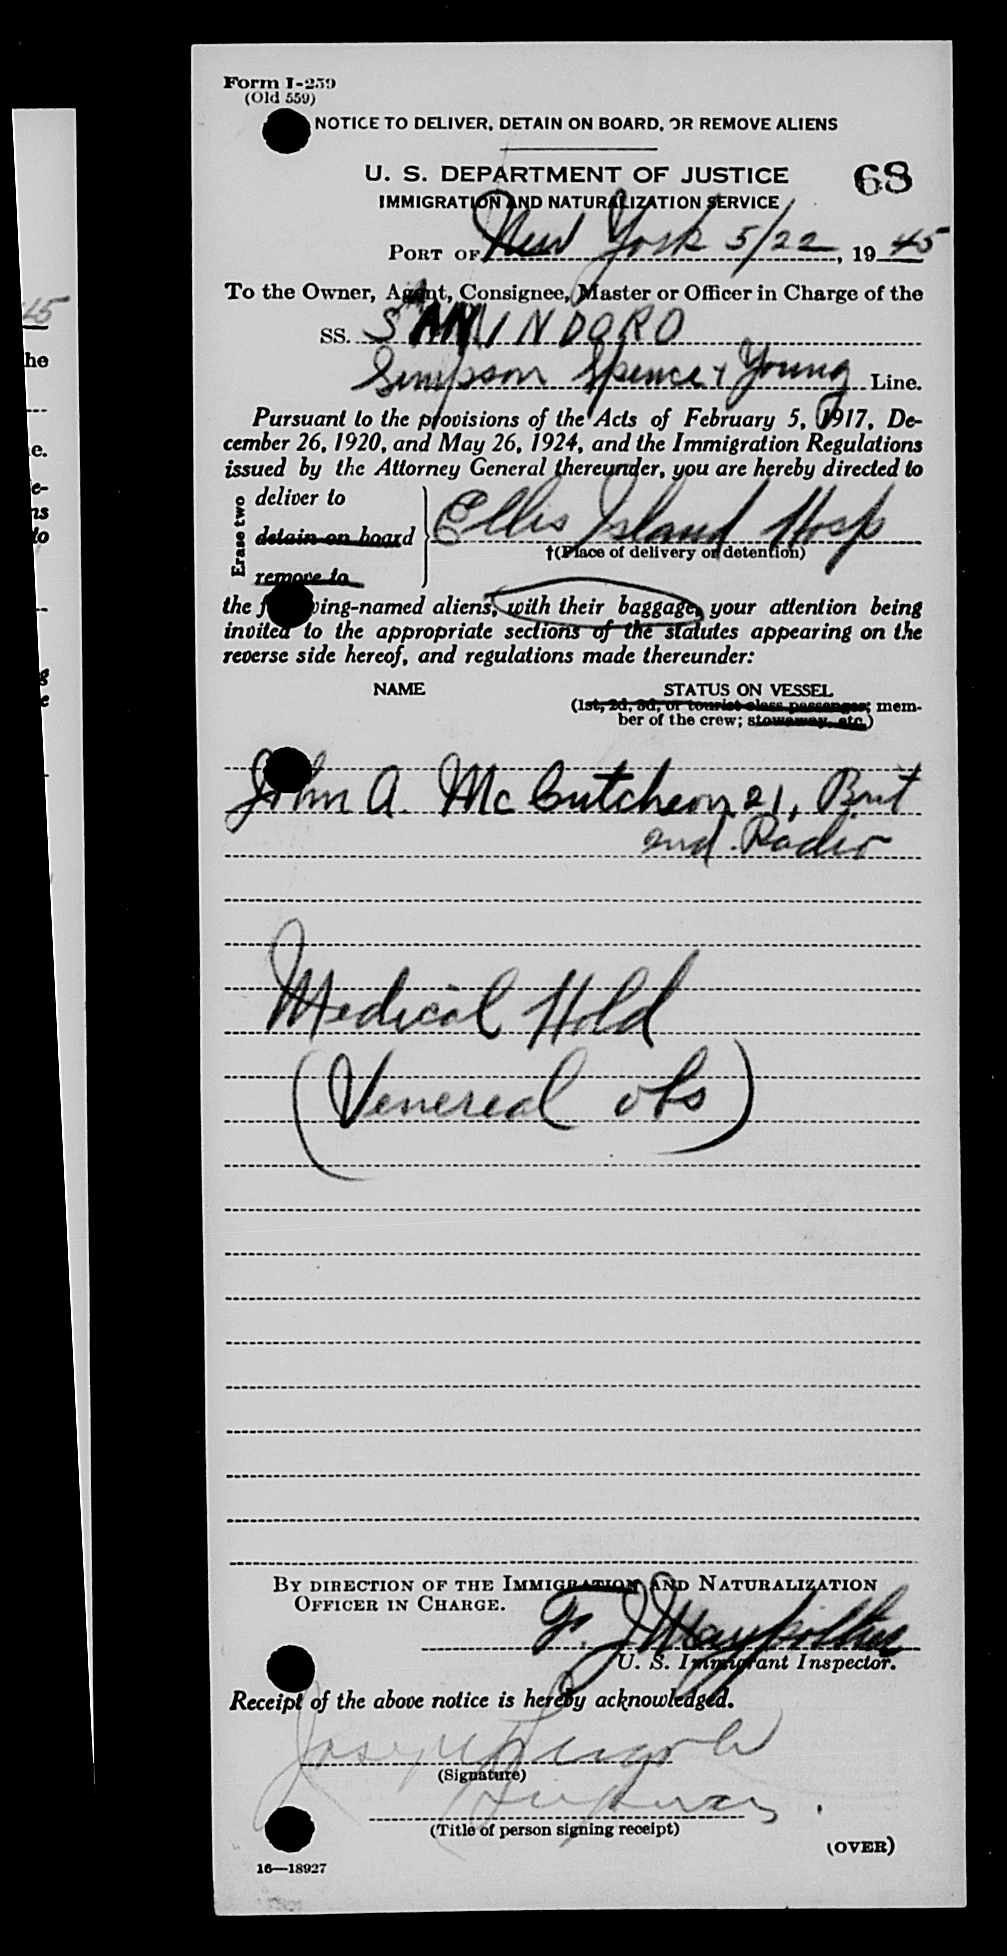 Form I-259
(Old 559)
NOTICE TO DELIVER, DETAIN ON BOARD, OR REMOVE ALIENS
U. S. DEPARTMENT OF JUSTICE
68
IMMIGRATION AND NATURALIZATION SERVICE
PORT OF New York 5/22, 1945
To the Owner, Agent, Consignee, Master or Officer in Charge of the
SS. SAMINDORO
Simpson Spence & Young Line.
Pursuant to the provisions of the Acts of February 5, 1917, De-
cember 26, 1920, and May 26, 1924, and the Immigration Regulations
issued by the Attorney General thereunder, you are hereby directed to
Erase two
deliver to
detain on board
remove to
Ellis Island Hosp
†(Place of delivery or detention)
the following-named aliens, with their baggage, your attention being
invited to the appropriate sections of the statutes appearing on the
reverse side hereof, and regulations made thereunder:
NAME STATUS ON VESSEL
(1st, 2d, 3d, or tourist class passenger; mem-
ber of the crew; stowaway, etc.)
John A. McCutcheon 21, Brit
2nd. Radio
Medical Hold
(Venereal obs)
BY DIRECTION OF THE IMMIGRATION AND NATURALIZATION
OFFICER IN CHARGE.
F. J.
U. S. Immigrant Inspector.
Receipt of the above notice is hereby acknowledged.
Joseph
(Signature)
(Title of person signing receipt)
(OVER)
16—18927
45
he
e.
e-
ns
to
g
e